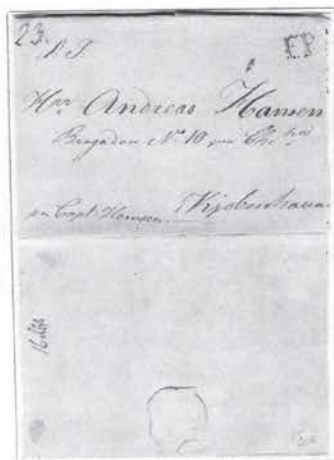 23.
F.P.
S. T.
Hrr Andreas Hansen
Brigaden No 10 paa Chr:havn
pr Capt Hansen Kjøbenhavn
16